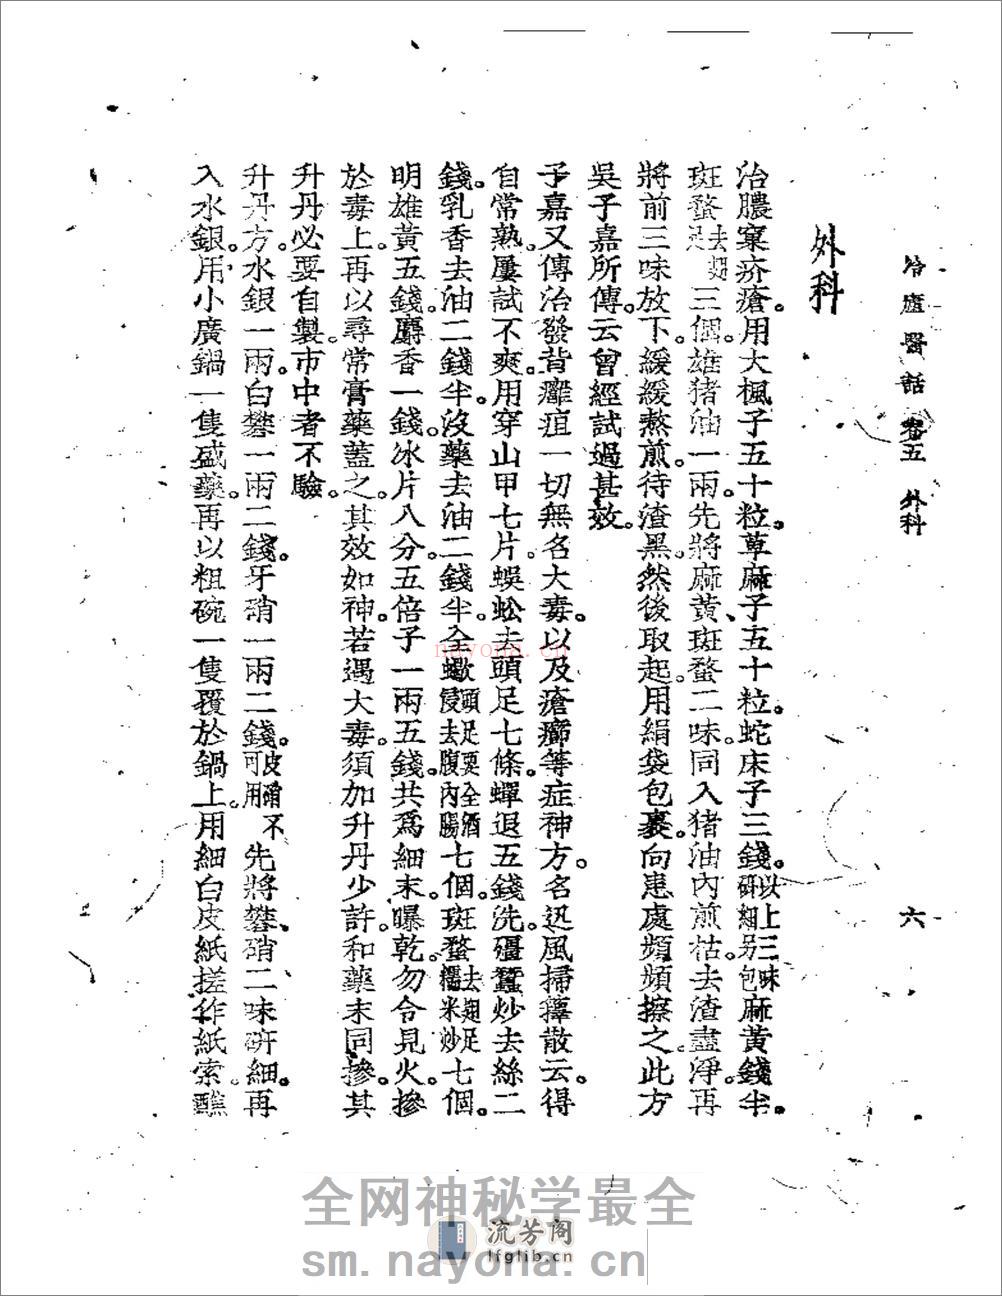 冷廬醫話 卷五 外科 六
外科
治膿窠疥瘡。用大楓子五十粒。萆麻子五十粒。蛇床子三錢。以上三味研細另包麻黃錢半。
斑蝥去翅足三個。雄猪油一兩。先將麻黃、斑蝥二味。同入猪油內煎枯。去渣盡淨。再
將前三味放下。緩緩熬煎。待渣黑。然後取起。用絹袋包裹。向患處頻頻擦之。此方
吳子嘉所傳。云曾經試過甚效。
子嘉又傳治發背癰疽一切無名大毒。以及瘡癤等症神方。名迅風掃籜散。云得
自常熟。屢試不爽。用穿山甲七片。蜈蚣去頭足七條。蟬退五錢洗。殭蠶炒去絲二
錢。乳香去油二錢半。沒藥去油二錢半。全蠍頭足要全酒浸去腹內腸七個。斑蝥去翅足糯米炒七個。
明雄黃五錢。麝香一錢。冰片八分。五倍子一兩五錢。共爲細末。曝乾。勿令見火。摻
於毒上。再以尋常膏藥蓋之。其效如神。若遇大毒。須加升丹少許。和藥末同摻。其
升丹必要自製。市中者不驗。
升丹方。水銀一兩。白礬一兩二錢。牙硝一兩二錢。皮硝不可用。先將礬、硝二味研細。再
入水銀。用小廣鍋一隻盛藥。再以粗碗一隻覆於鍋上。用細白皮紙搓作紙索。醮
nayona.cn
全网神秘学最全
流芳阁
lfglib.cn
sm.nayona.cn